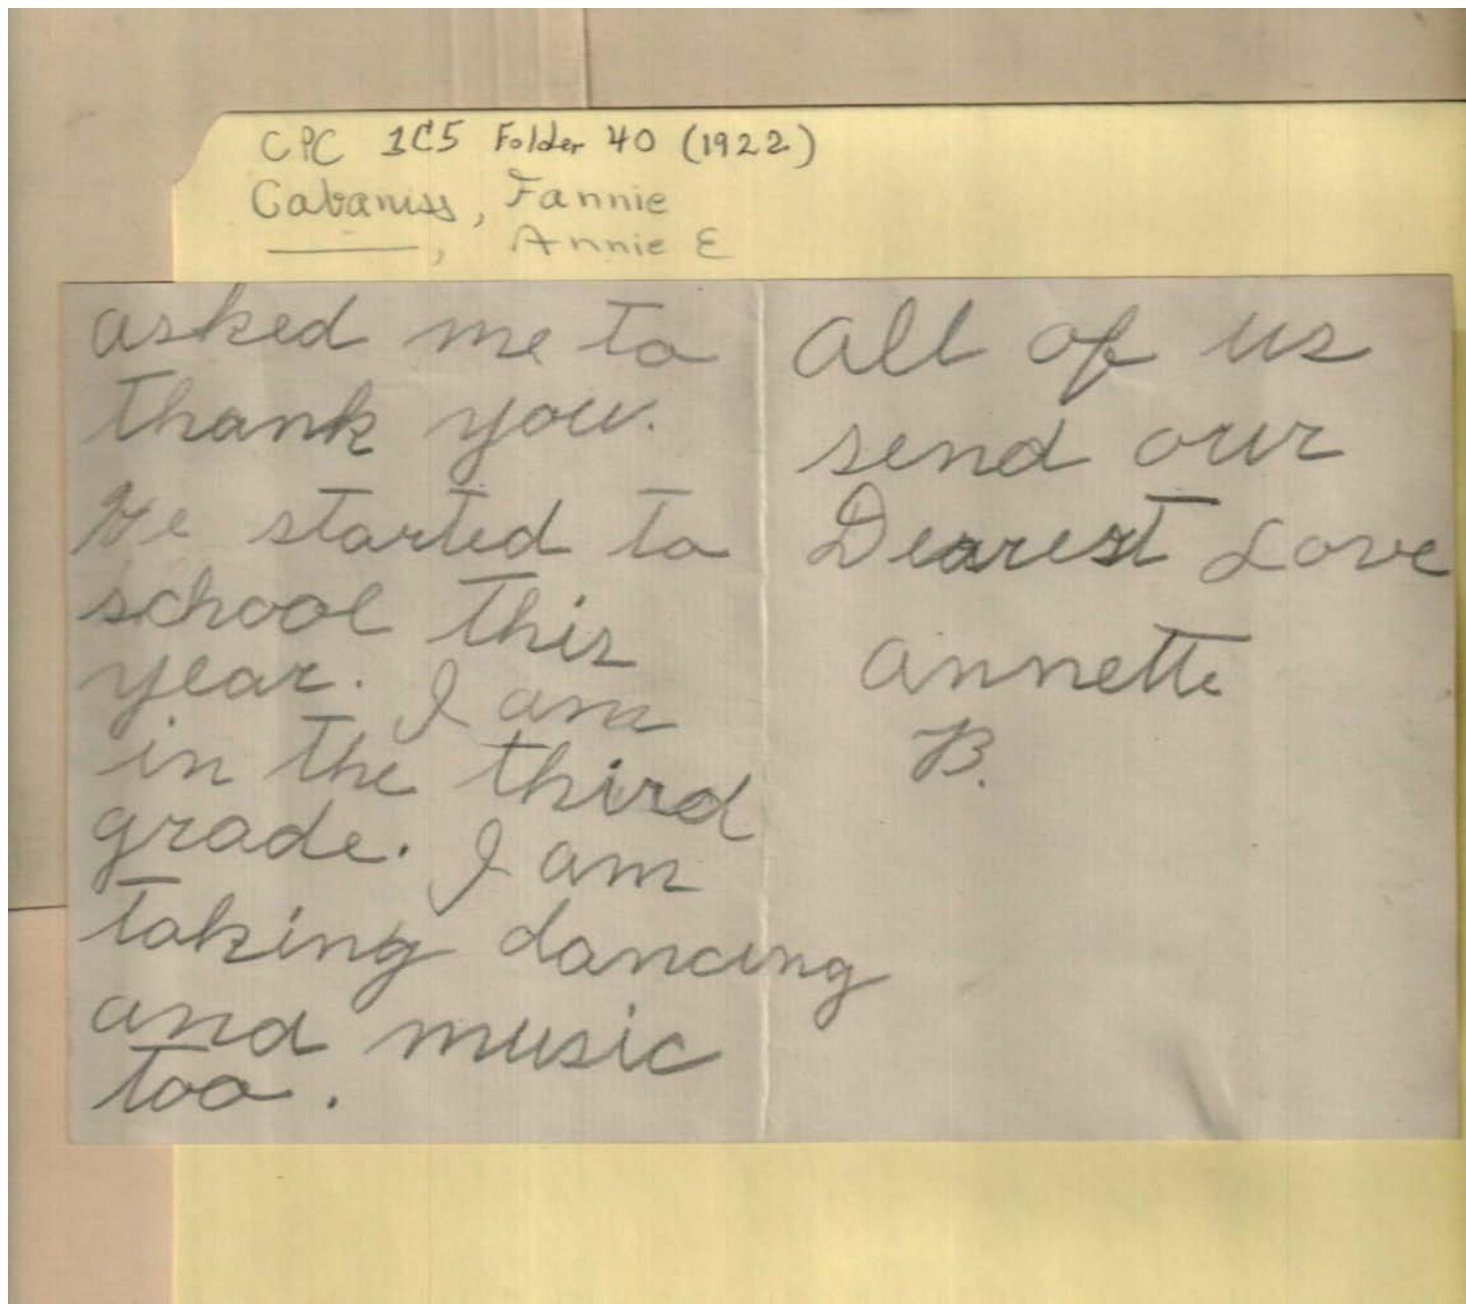 CPC 1C5 Folder 40 (1922)
Cabaniss, Fannie
———, Annie E
asked me to
thank you.
We started to
school this
year. I am
in the third
grade. I am
taking dancing
and music
too.
all of us
send our
Dearest Love
annette
B.